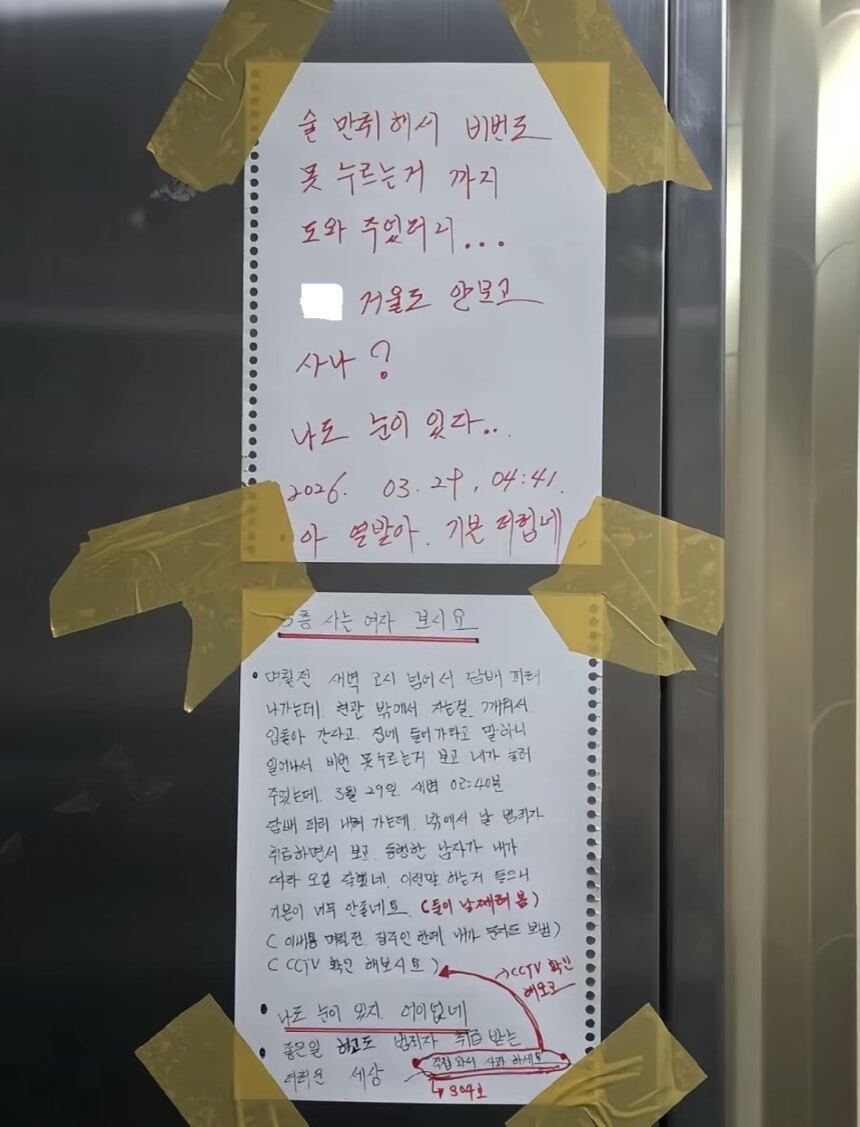 술 만취해서 비번도
못 누르는거 까지
도와 주었더니...
거울도 안보고
사나?
나도 눈이 있다..
2026. 03. 29, 04:41.
아 열받아. 기분 더럽네
5층 사는 여자 보시요
• 며칠전 새벽 2시 넘어서 담배 피러
나가는데. 현관 밖에서 자는걸. 깨워서
입돌아 간다고. 집에 들어가라고 말하니
일어나서 비번 못누르는거 보고 내가 눌러
주었는데. 3월 29일. 새벽 02:40분
담배 피러 내려 가는데. 밖에서 날 범죄자
취급하면서 보고. 동행한 남자가 내가
따라 오길 잘했네. 이런말 하는거 들으니
기분이 너무 안좋네요. (둘이 날 째려 봄)
( 이내용 며칠전. 집주인 한테 내가 보냄)
( CCTV 확인 해보시요 )
→CCTV 확인
해보고
• 나도 눈이 있지. 어이없네
• 좋은일 하고도 범죄자 취급 받는
직접 와서 사과 하세요
더러운 세상
↳ 304호